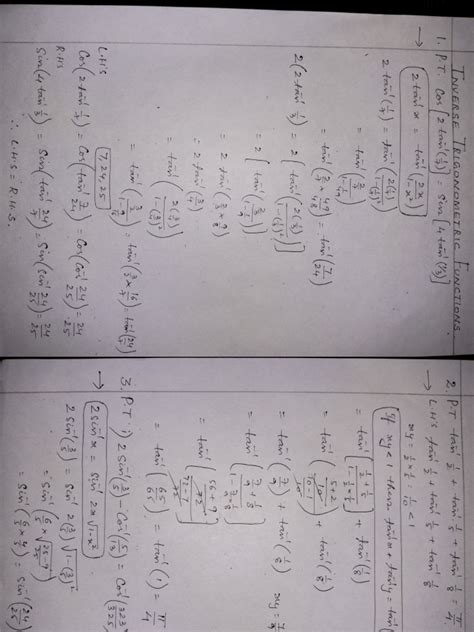 INVERSE TRIGONOMETRIC FUNCTIONS.
1. P.T. Cos[2tan⁻¹(1/7)] = Sin[4tan⁻¹(1/3)]
→ 2tan⁻¹x = tan⁻¹(2x/(1-x²))
2tan⁻¹(1/7) = tan⁻¹(2(1/7)/(1-(1/7)²))
= tan⁻¹((2/7)/(1-1/49))
= tan⁻¹(2/7 × 49/48) = tan⁻¹(7/24)
2(2tan⁻¹ 1/3) = 2[tan⁻¹(2(1/3)/(1-(1/3)²))]
= 2[tan⁻¹((2/3)/(1-1/9))]
= 2tan⁻¹(2/3 × 9/8)
= 2tan⁻¹(3/4)
= tan⁻¹(2(3/4)/(1-(3/4)²))
= tan⁻¹((3/2)/(1-9/16)) = tan⁻¹(3/2 × 16/7) = tan⁻¹(24/7)
7,24,25
L.H.S
Cos(2tan⁻¹ 1/7) = Cos(tan⁻¹ 7/24) = Cos(Cos⁻¹ 24/25) = 24/25
R.H.S
Sin(4tan⁻¹ 1/3) = Sin(tan⁻¹ 24/7) = Sin(Sin⁻¹ 24/25) = 24/25
∴ L.H.S = R.H.S.
2. P.T. tan⁻¹ 1/2 + tan⁻¹ 1/5 + tan⁻¹ 1/8 = π/4
→ L.H.S tan⁻¹ 1/2 + tan⁻¹ 1/5 + tan⁻¹ 1/8
xy = 1/2 × 1/5 = 1/10 < 1
If xy<1 then tan⁻¹x + tan⁻¹y = tan⁻¹
= tan⁻¹[(1/2 + 1/5)/(1 - 1/2·1/5)] + tan⁻¹(1/8)
= tan⁻¹[((5+2)/10)/((10-1)/10)] + tan⁻¹(1/8)
= tan⁻¹(7/9) + tan⁻¹(1/8) xy = 7/9
= tan⁻¹[(7/9 + 1/8)/(1 - 7/9·1/8)]
= tan⁻¹[((56+9)/72)/((72-7)/72)]
= tan⁻¹(65/65) = tan⁻¹(1) = π/4
3. P.T. i) 2sin⁻¹(3/5) - Cos⁻¹(5/13) = Cos⁻¹(323/325)
→ 2sin⁻¹x = sin⁻¹ 2x√(1-x²)
2sin⁻¹(3/5) = sin⁻¹ 2(3/5)√(1-(3/5)²)
= sin⁻¹(6/5 × √((25-9)/25))
= sin⁻¹(6/5 × 4/5) = sin⁻¹(24/25)